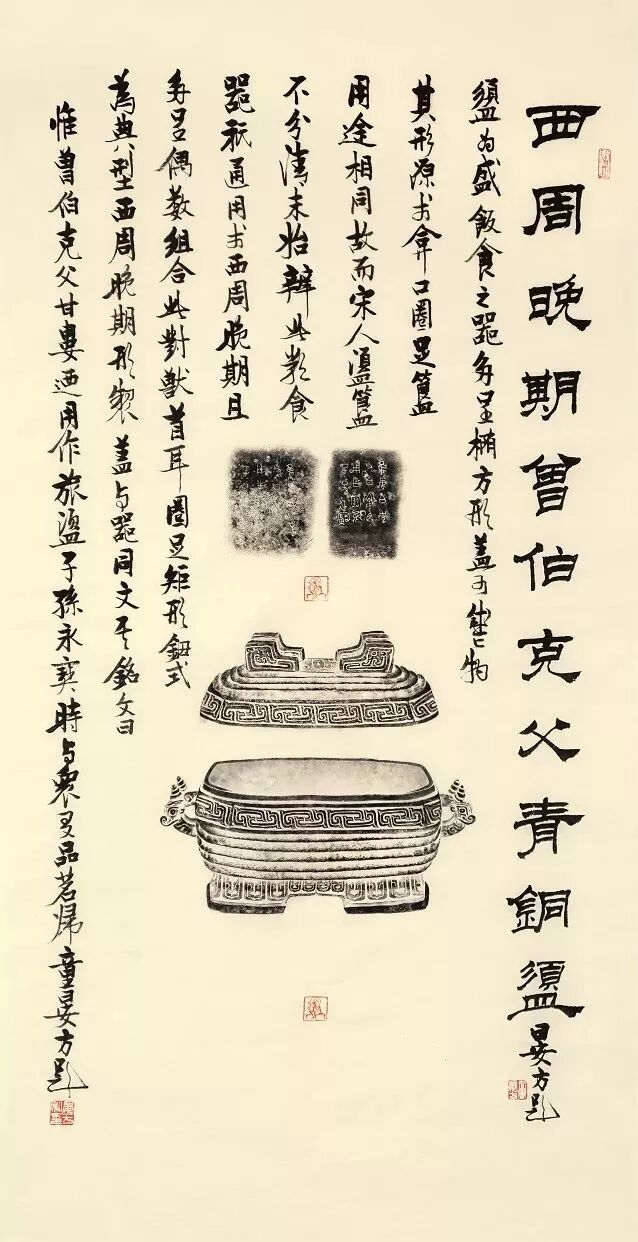 西周晚期曾伯克父青銅盨
晏方題
盨为盛飯食之器多呈橢方形蓋可盛物
其形源于弇口圈足簋
用途相同故而宋人盨簋
不分清末始辨此類食
器秖通用于西周晚期且
多呈偶數組合此對獸首耳圈足矩形鈕式
為典型西周晚期形製蓋与器同文其銘文曰
惟曾伯克父甘婁迺用作旅盨子孫永寶時与衆品茗歸童晏方題